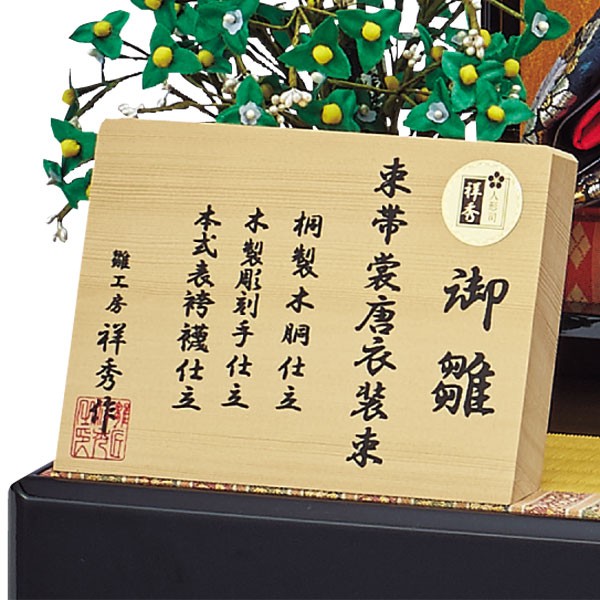 御雛
束帯裳唐衣装束
桐製木胴仕立
木製彫刻手仕立
本式表袴襪仕立
雛工房 祥秀作
人形司
祥秀